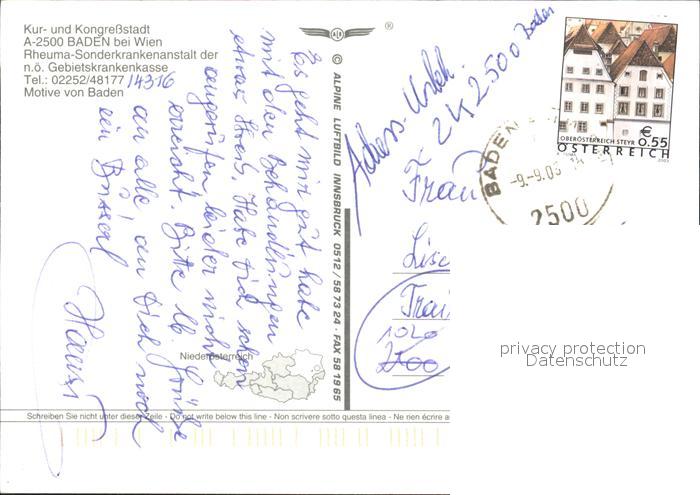 Kur- und Kongreßstadt
A-2500 BADEN bei Wien
Rheuma-Sonderkrankenanstalt der
n.ö. Gebietskrankenkasse
Tel.: 02252/48177 /14316
Motive von Baden
®
© ALPINE LUFTBILD INNSBRUCK 0512/58 73 24 · FAX 58 19 65
Es geht mir gut habe
mit den Behandlungen
etwas Streß. Habe Dich schon
angerufen leider nicht
erreicht. Bitte lb. Grüße
an alle, an Dich noch
ein Bussal
Niederösterreich
Schreiben Sie nicht unter dieser Zeile - Do not write below this line - Non scrivere sotto questa linea - Ne rien écrire a
2500 Baden
Frau
1020
2500
BADEN
-9.-9.05
2500
OBERÖSTERREICH STEYR
€
0.55
ÖSTERREICH
privacy protection
Datenschutz